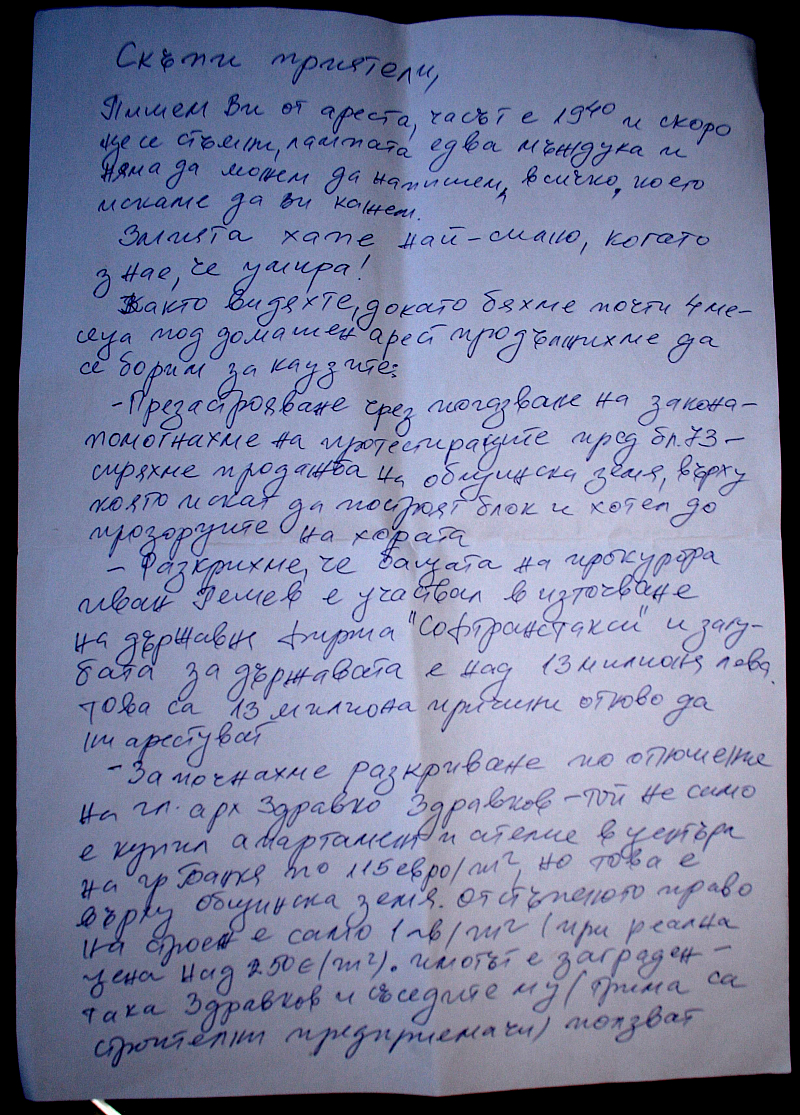 Скъпи приятели,
Пишем Ви от ареста, часът е 19⁴⁰ и скоро
ще се стъмни, лампата едва мъждука и
няма да можем да напишем всичко, което
искаме да ви кажем.
Змията хапе най-силно, когато
знае, че умира!
Както видяхте, докато бяхме почти 4 ме-
сеца под домашен арест продължихме да
се борим за каузите:
-Презастрояване чрез погазване на закона-
помогнахме на протестиращите пред бл.73-
спряхме продажба на общинска земя, върху
която искат да построят блок и хотел до
прозорците на хората
- Разкрихме, че бащата на прокурора
Иван Гешев е участвал в източване
на държавна фирма "Софтранстакси" и загу-
бата за държавата е над 13 милиона лева.
Това са 13 милиона причини отново да
ни арестуват
-Започнахме разкриване по отношение
на гл. арх Здравко Здравков-той не само
е купил апартамент и ателие в центъра
на гр Банкя по 115евро/m², но това е
върху общинска земя. Отстъпеното право
на строеж е само 1лв/m² (при реална
цена над 250€/m²). Имотът е заграден-
така Здравков и съседите му (трима са
строителни предприемачи) ползват